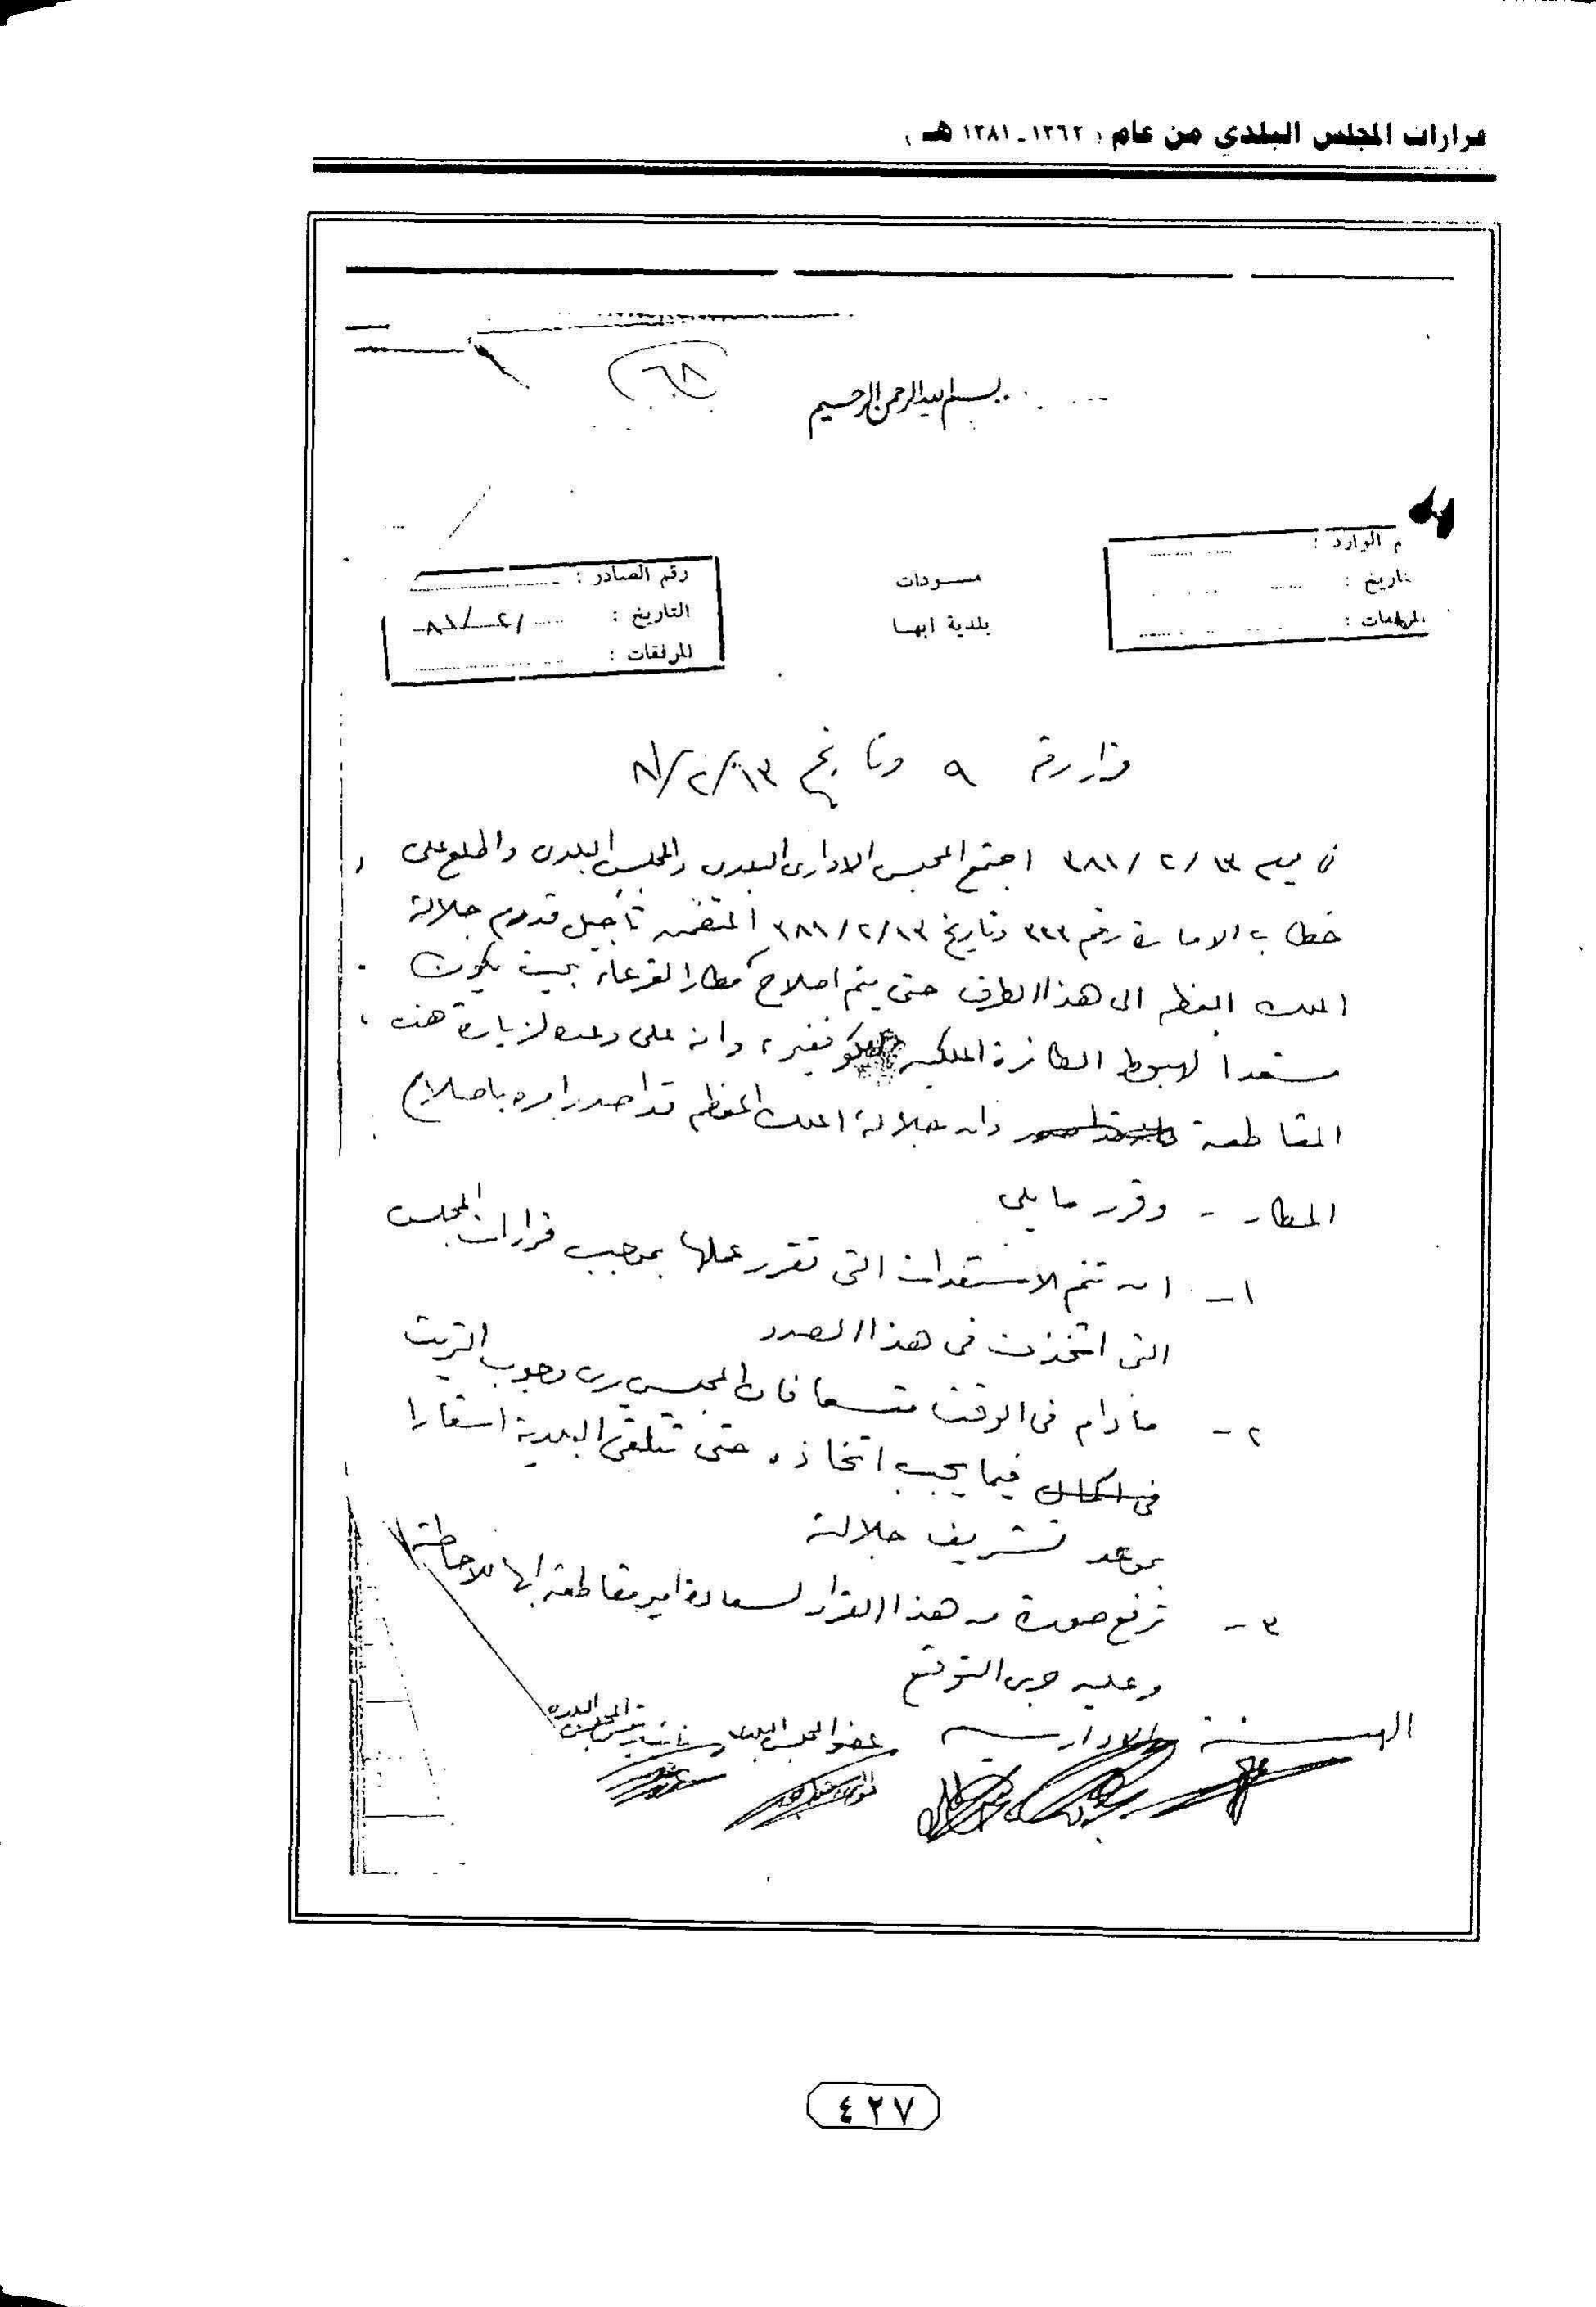 قرارات المجلس البلدي من عام (١٣٦٢-١٣٨١هـ)
٦٨
بسم الله الرحمن الرحيم
م الوارد :
تاريخ :
المرفقات :
مسودات
بلدية ابها
رقم الصادر :
التاريخ : / ٢ / ٨١
المرفقات :
قرار رقم ٩ وتاريخ ١٣/٢/٨١
في يوم ١٣/٢/٣٨١ اجتمع المجلس الاداري البلدى والمجلس البلدى واطلع على
خطاب الامارة رقم ٣٢٣ وتاريخ ١٣/٢/٣٨١ المتضمن تأجيل قدوم جلالة
الملك المعظم الى هذا الطرف حتى يتم اصلاح مطار القرعاء بحيث يكون
مستعدا لهبوط الطائرة الملكية وانه على وعده لزيارة هذه
المقاطعة وان جلالة الملك المعظم قد اصدر امره باصلاح
المطار - وقرر ما يلى
١- ان تتم الاستعدادات التى تقرر عملها بموجب قرارات المجلس
التى اتخذت فى هذا الصدد
٢- مادام فى الوقت متسعا فان المجلس يرى وجوب التريث
فيما يجب اتخاذه حتى تتلقى البلدية اشعارا
بموعد تشريف جلالته
٣- ترفع صورة من هذا القرار لسعادة امير مقاطعة ابها للاحاطة
وعليه جرى التوقيع
الهيئة الادارية
عضو المجلس البلدى
نائب رئيس المجلس البلدى
٤٢٧